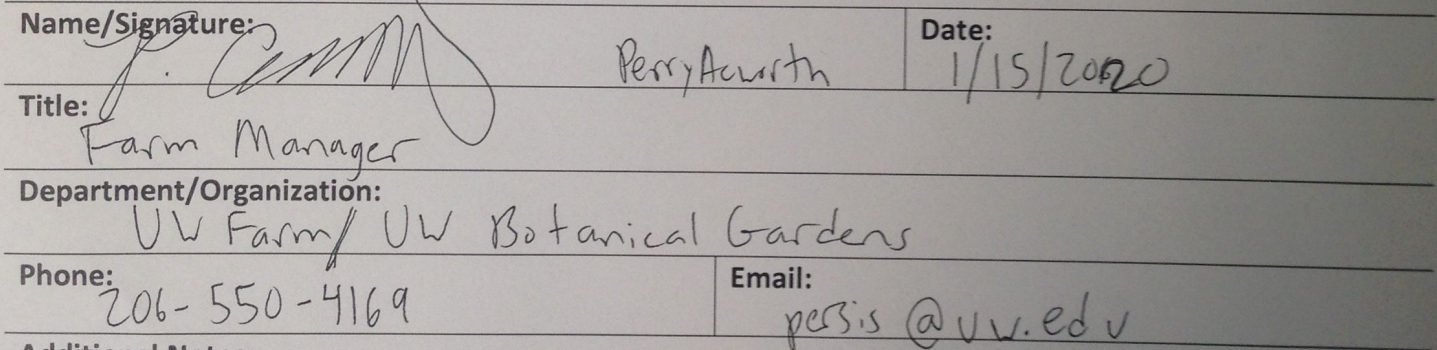 Name/Signature: P. Perry Acworth Date: 1/15/2020
Title:
Farm Manager
Department/Organization:
UW Farm/ UW Botanical Gardens
Phone: Email:
206-550-4169 persis@uw.edu
Additional Notes: